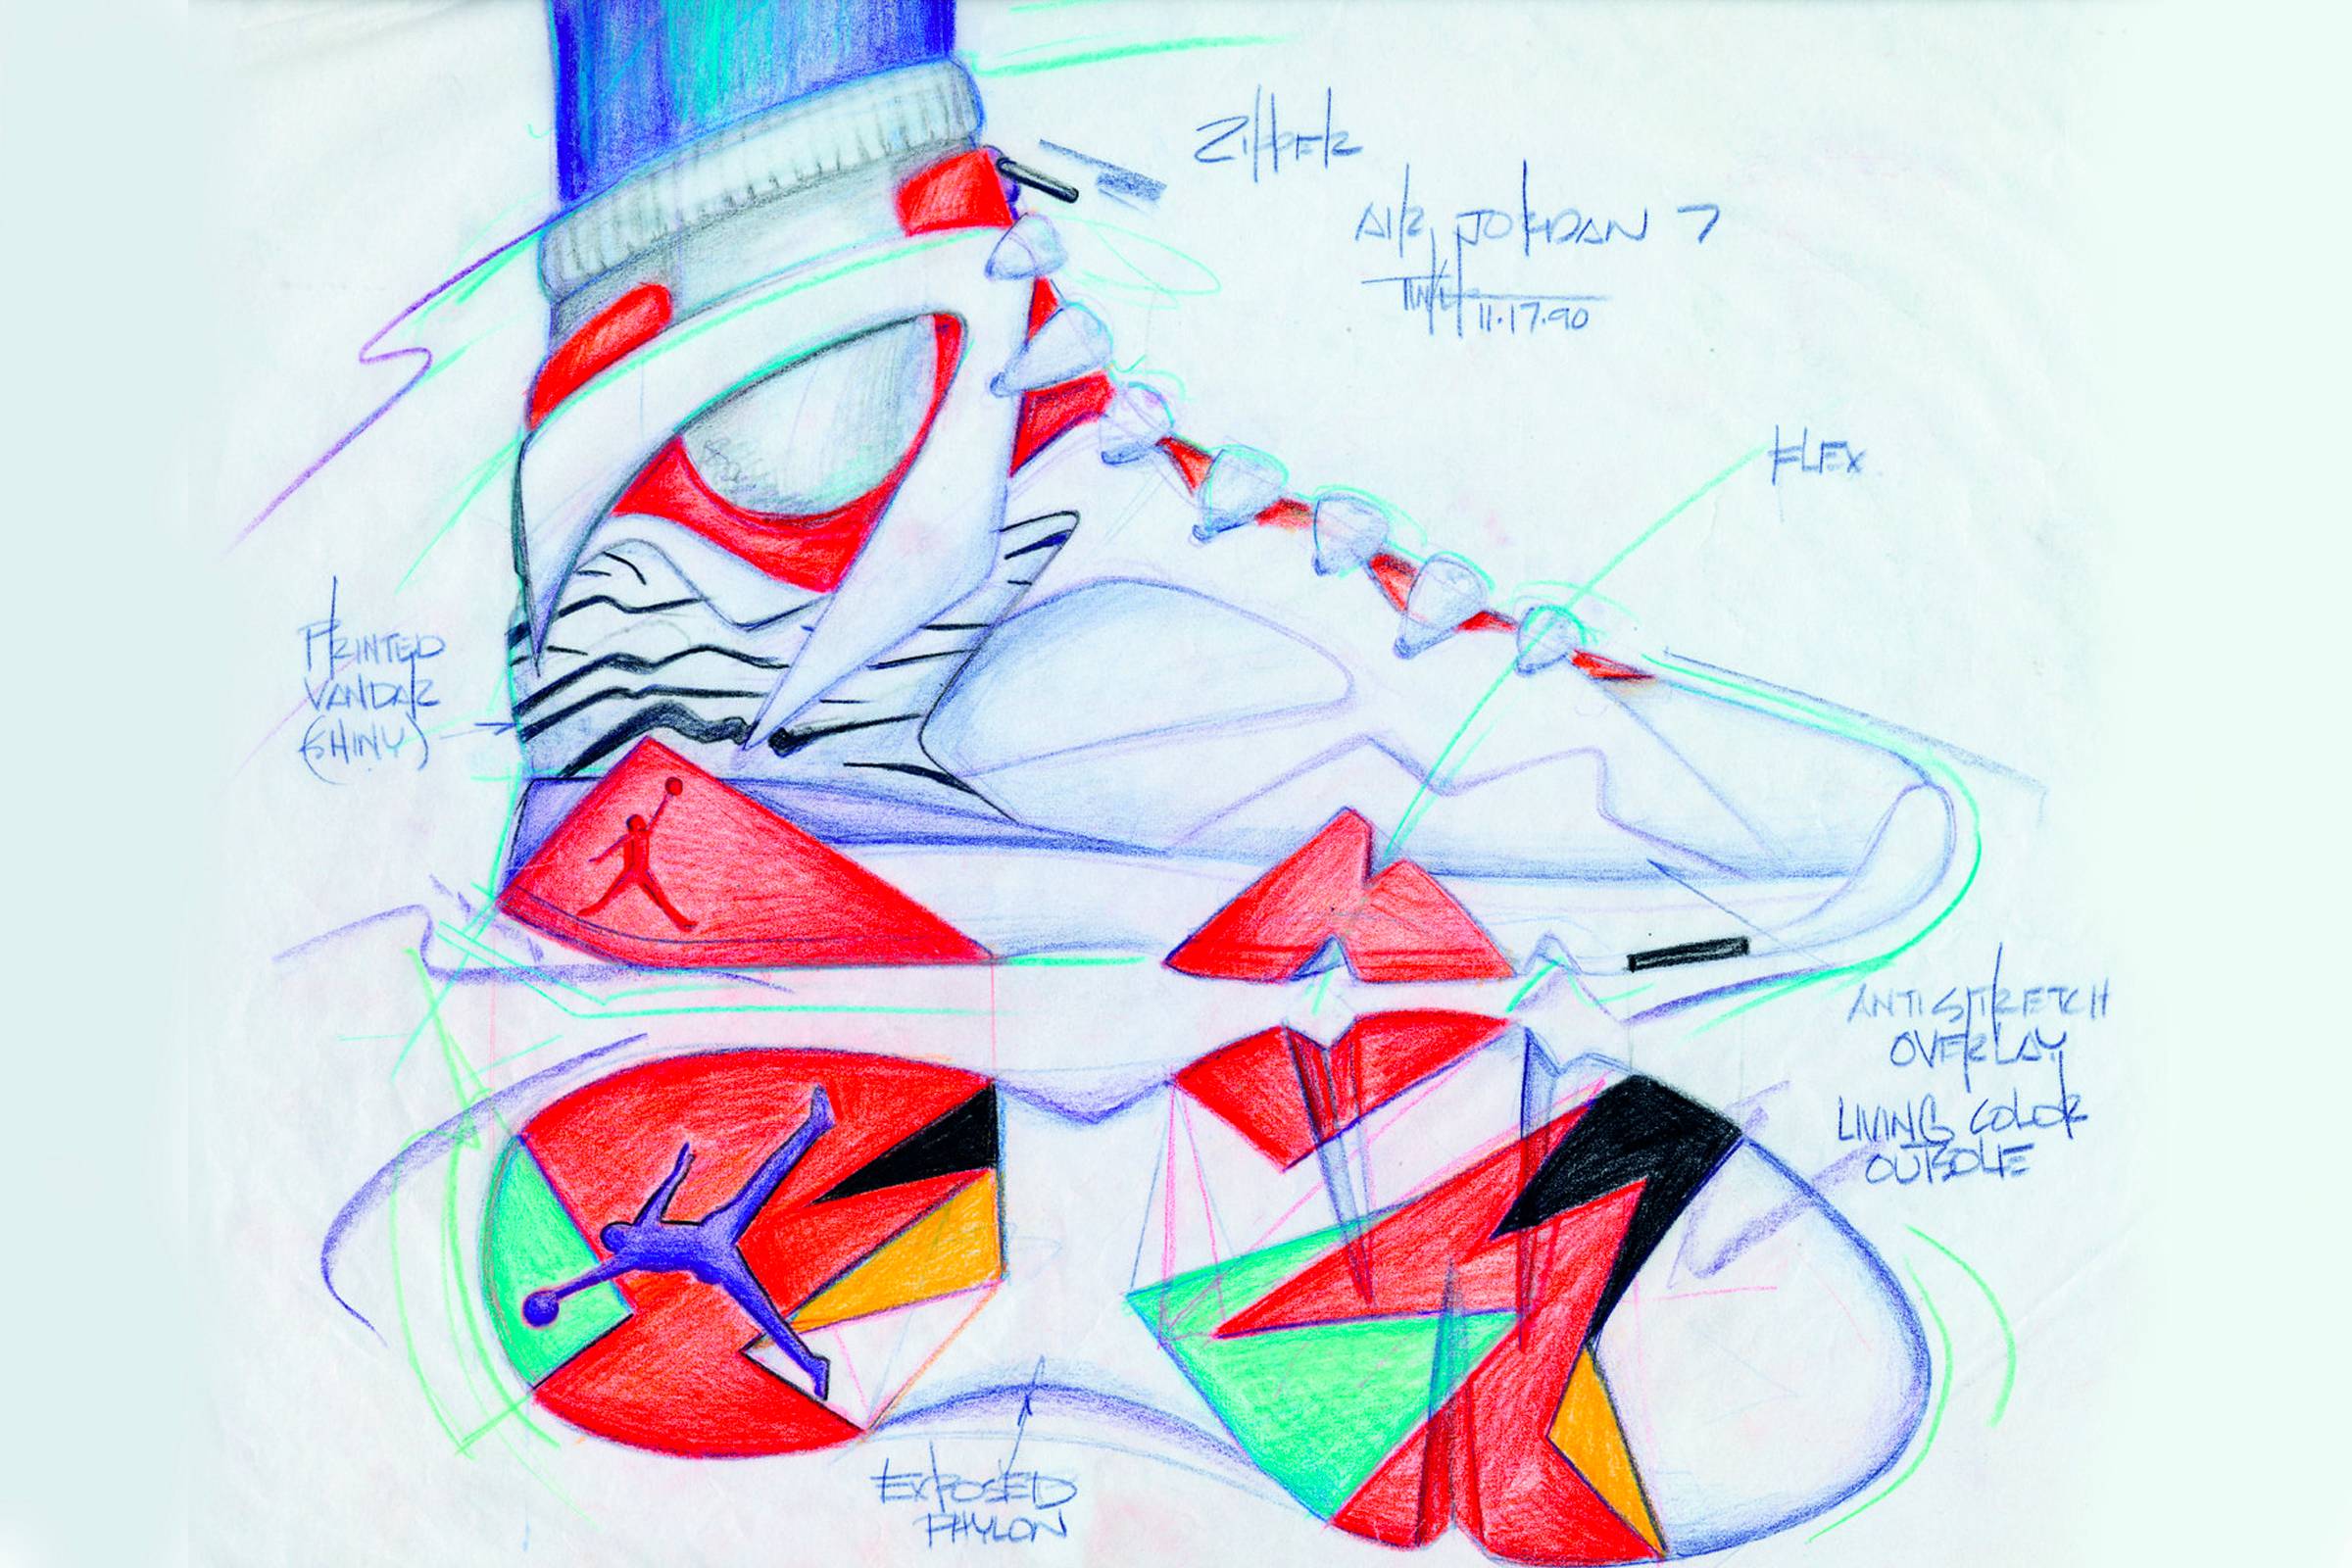 ZIPPER
AIR JORDAN 7
11.17.90
FLEX
PRINTED
VANDAR
(SHINY)
ANTI STRETCH
OVERLAY
LIVING COLOR
OUTSOLE
EXPOSED
PHYLON